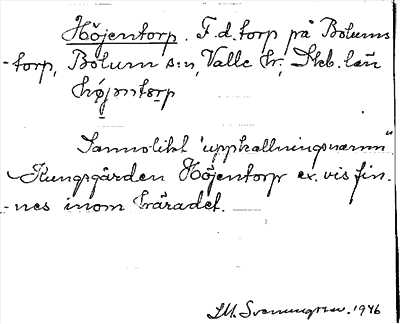 Höjentorp. F.d. torp på Bolums
-torp, Bolum s:n, Valle hr, Skb. län
højmtorp
Sannolikt "uppkallningsnamn"
Kungsgården Höjentorp ex. vis fin-
-nes inom häradet.
M. Svenungsson. 1946